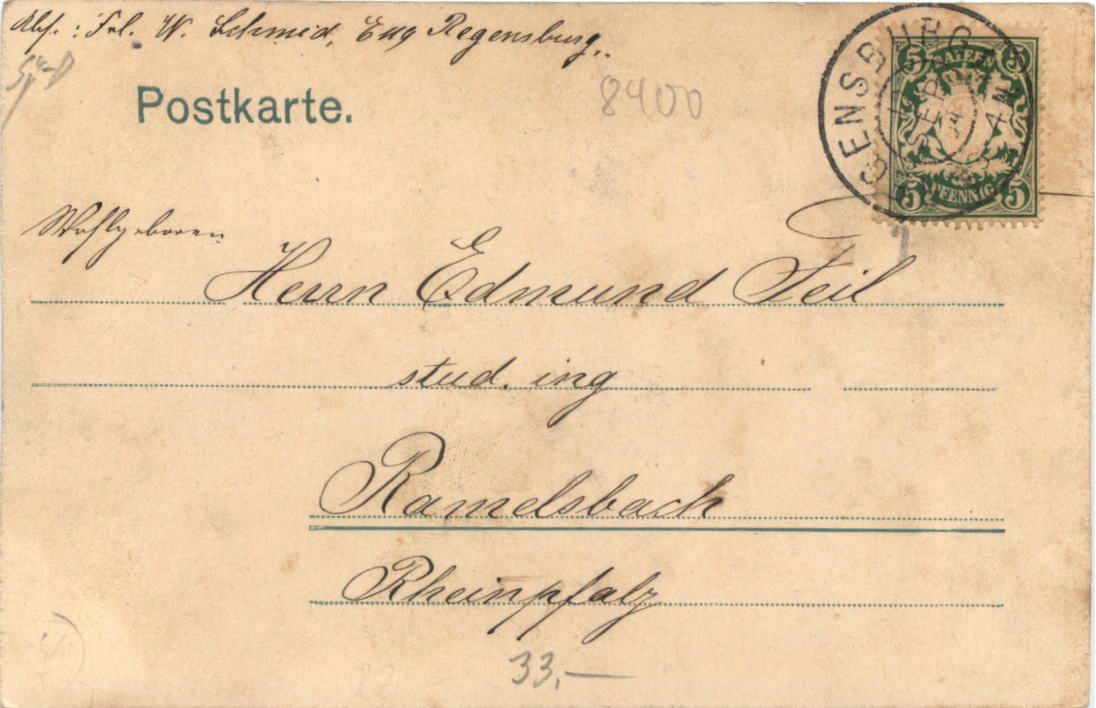 Abs.: Frl. W. Schmid, Regensburg.
Postkarte.
8400
GENSBURG
SEP
4 N
BAYERN
5 5
5 PFENNIG 5
Wohlgeboren
Herrn Edmund Feil
stud. ing
Ramelsbach
Rheinpfalz
33,—